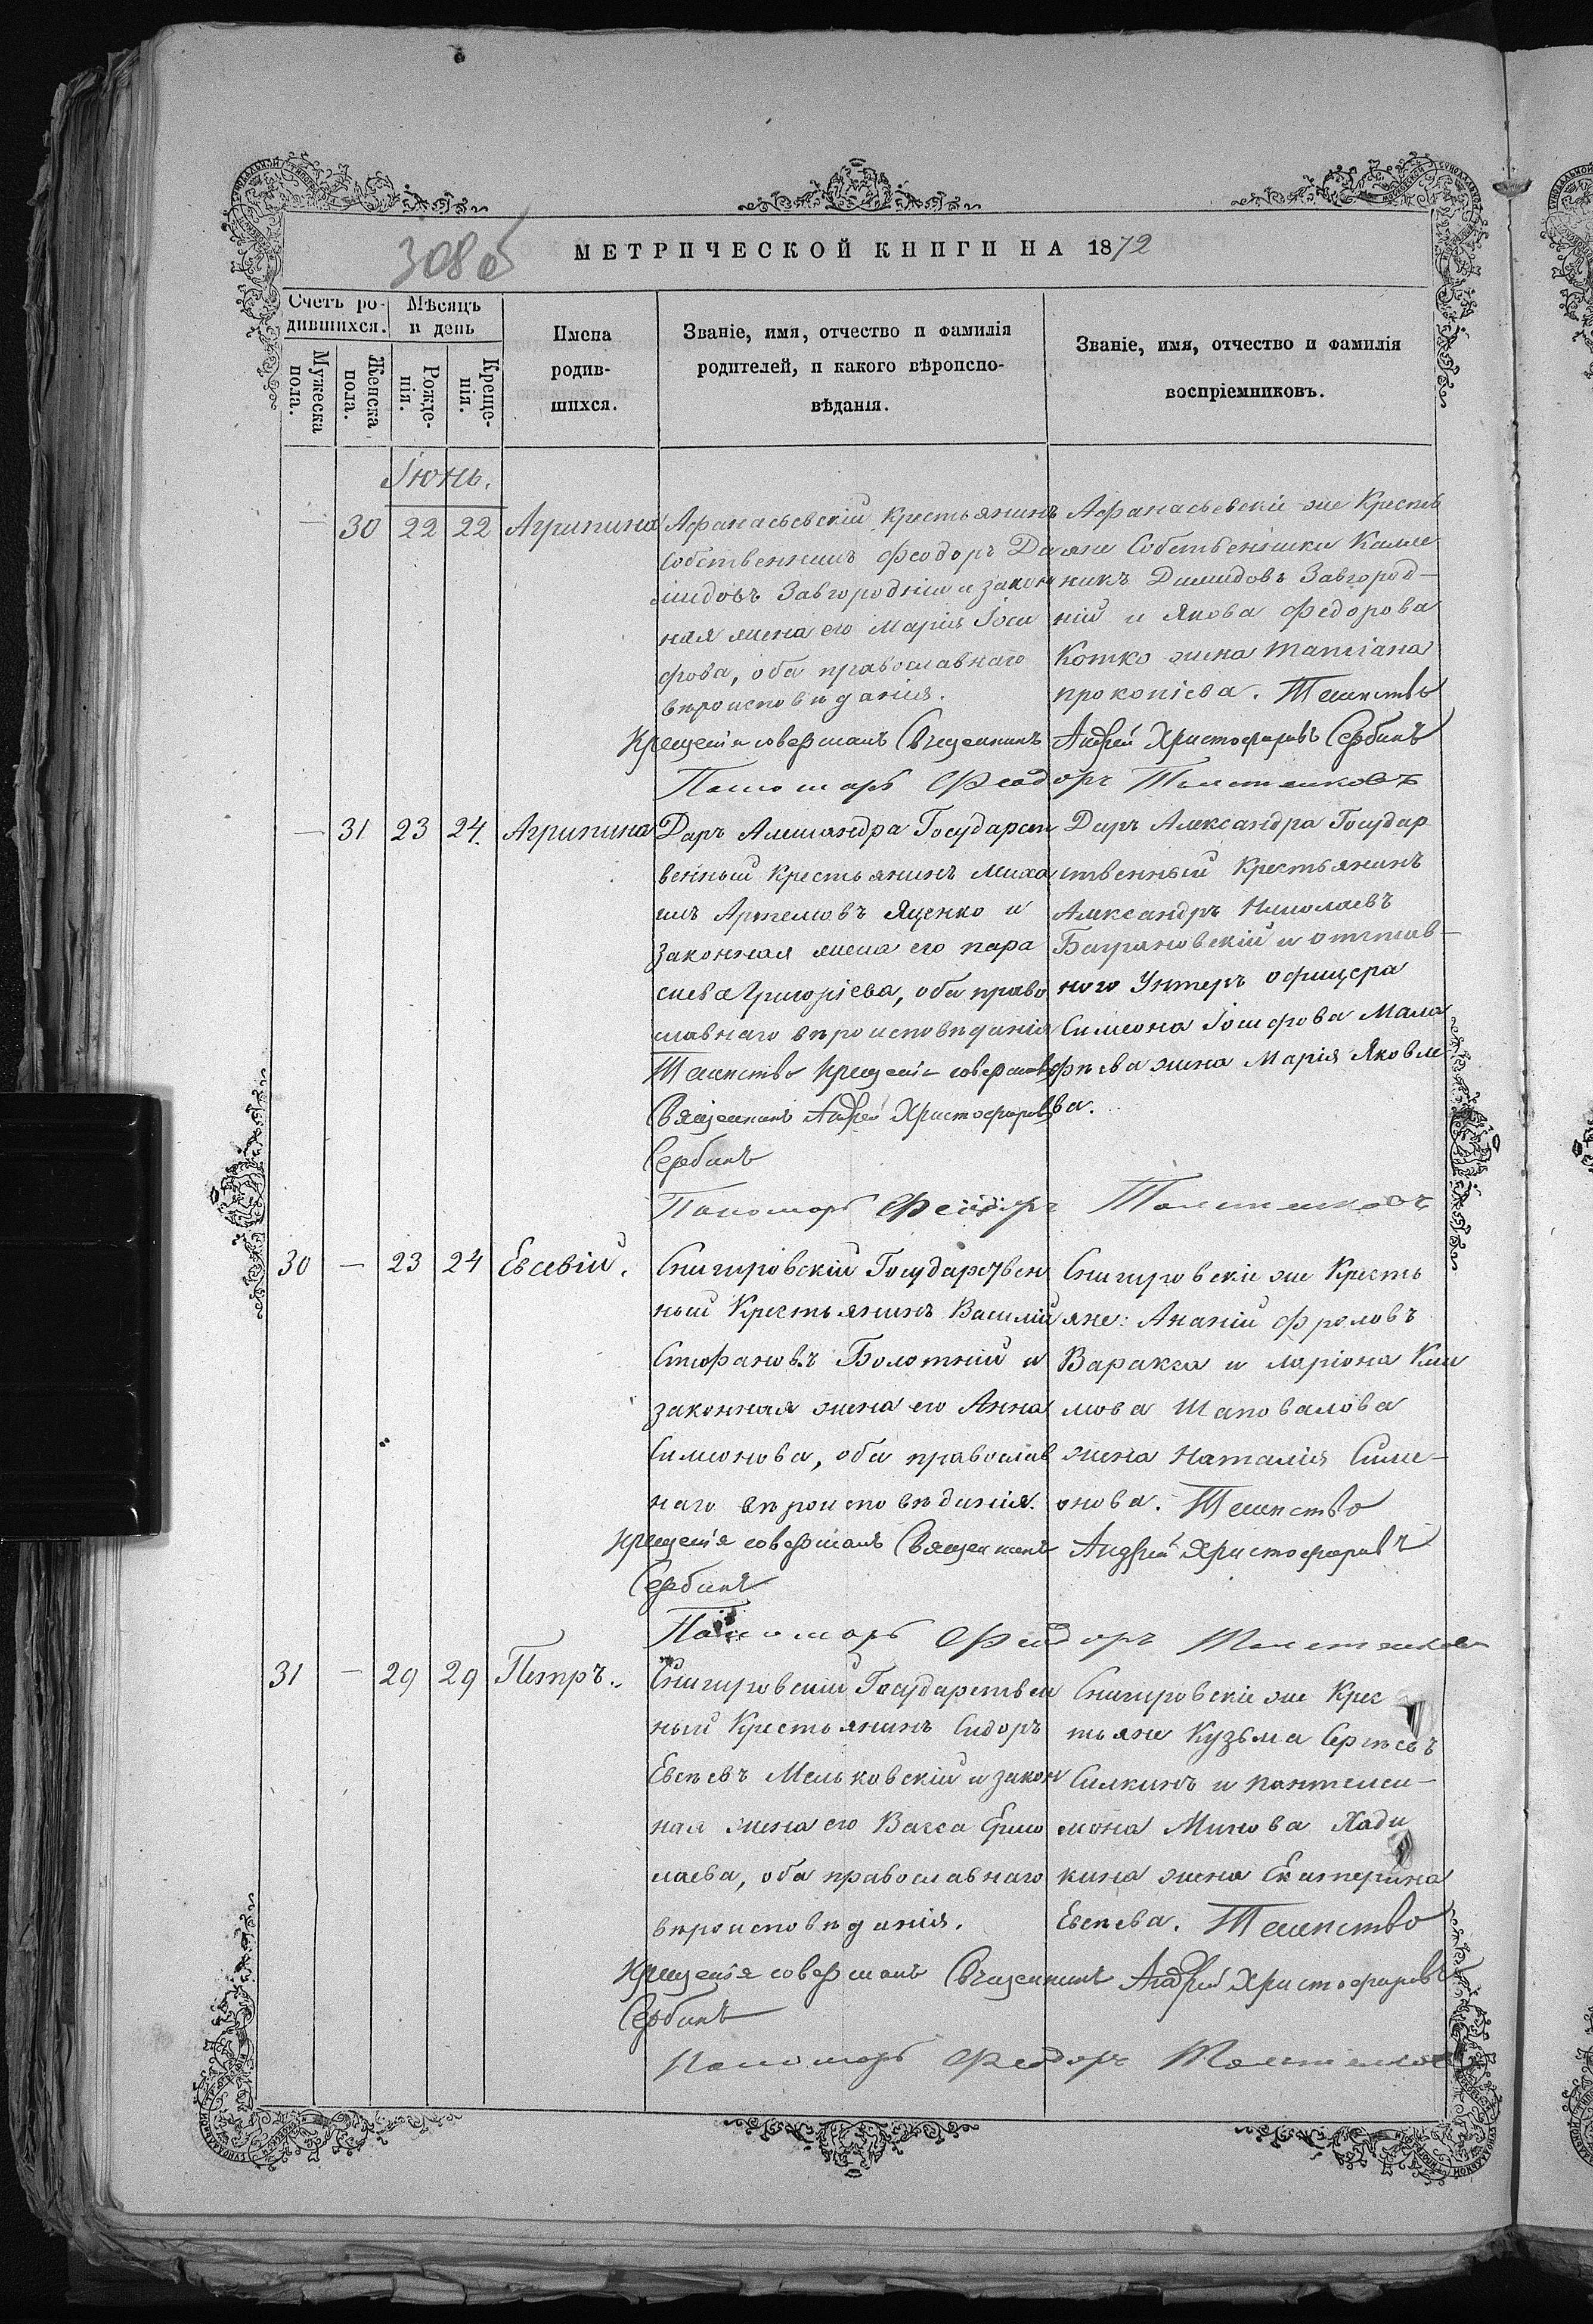 308 об
МЕТРИЧЕСКОЙ КНИГИ НА 1872
Счетъ ро-
дившихся.
Мужеска
пола.
Женска
пола.
Мѣсяцъ
и день
Рожде-
нія.
Креще-
нія.
Имена
родив-
шихся.
Званіе, имя, отчество и фамилія
родителей, и какого вѣроиспо-
вѣданія.
Званіе, имя, отчество и фамилія
воспріемниковъ.
Іюнь.
— 30 22 22 Агрипина
Афанасьевскій крестьянинъ
Собственникъ Феодоръ Де
мидовъ Завгородній и закон
ная жена его Марія Іоси
фова, оба православнаго
вѣроисповѣданія.
Афанасьевскіе же Кресть
яне Собственники Калле
никъ Демидовъ Завгород-
ній и Якова Федорова
Котко жена Татіана
прокопіева. Таинство
Крещенія совершалъ Священникъ Андрей Христофоровъ Сербинъ
Пономарь Феодоръ Толстенковъ
— 31 23 24. Агрипина
Даръ Александра Государст
венный Крестьянинъ Миха
илъ Артемовъ Яценко и
законная жена его пара
скева Григоріева, оба право
славнаго вѣроисповѣданія
Таинство крещенія совершалъ
Священникъ Андрей Христофоровъ
Сербинъ
Даръ Александра Государ
ственный Крестьянинъ
Александръ Николаевъ
Багряновскій и отстав-
ного Унтеръ офицера
Симеона Іосифова Мала
фѣева жена Марія Яковле
ва.
Пономарь Феодоръ Толстенковъ
30 — 23 24 Евсевій.
Снигировскій Государствен
ный Крестьянинъ Василій
Стефановъ Болотній и
законная жена его Анна
Симеонова, оба православ
наго вѣроисповѣданія.
Снигировскіе же Кресть
яне: Ананій Фроловъ
Варакса и Ларіона Кли
мова Шаповалова
жена Наталія Симе-
онова. Таинство
крещенія совершалъ Священникъ Андрей Христофоровъ
Сербинъ
Пономарь Феодоръ Толстенковъ
31 — 29 29 Петръ.
Снигировскій Государствен
ный Крестьянинъ Сидоръ
Евсѣевъ Мельковскій и закон
ная жена его Васса Ермо
лаева, оба православнаго
вѣроисповѣданія.
Снигировскіе же Крес
тьяне Кузьма Сергѣевъ
Силкинъ и пантелеи-
мона Минова Хади
кина жена Екатерина
Евсѣева. Таинство
крещенія совершалъ Священникъ Андрей Христофоровъ
Сербинъ
Пономарь Феодоръ Толстенковъ